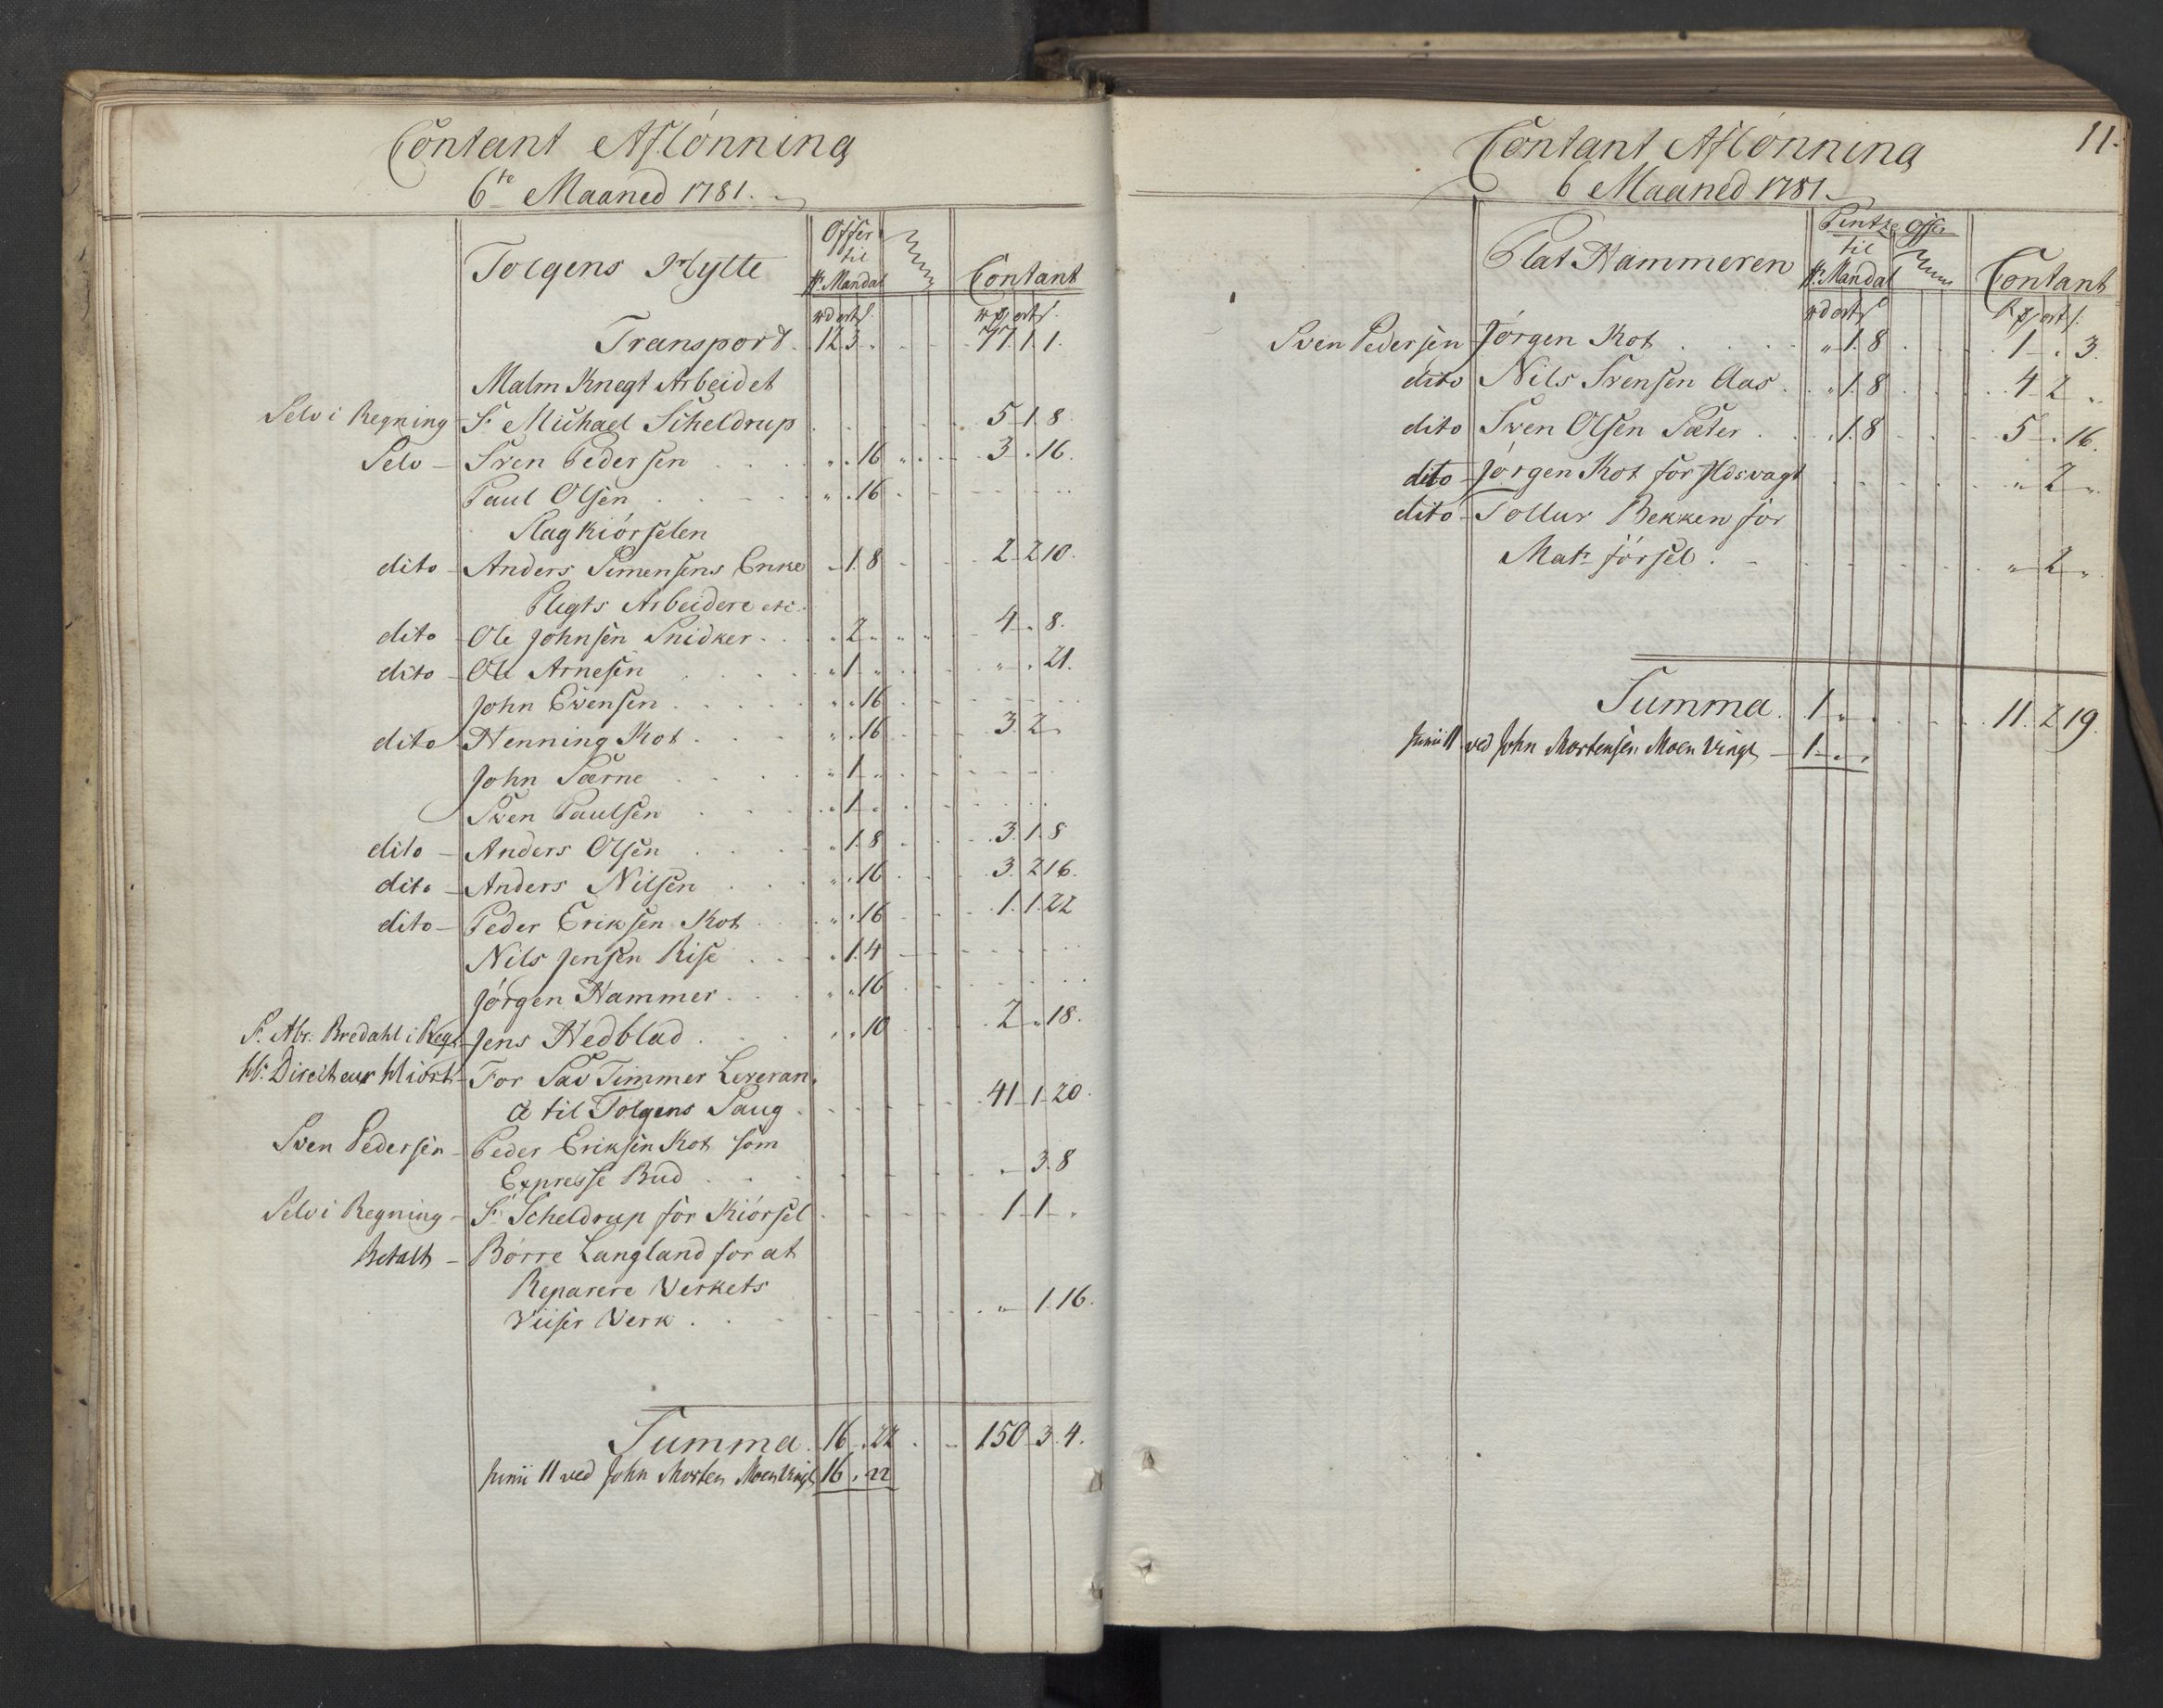 Contant Aflönning
6te Maaned 1781.
Tolgens Hytte
Offer til Hr. Mandal
Contant
rd ort s. rd ort s.
Transport. 12 3 " 77. 1. 1.
Malm Knegt Arbeidet
Selv i Regning - Sr. Michael Scheldrup 5 - 1. 8.
Selv - Sven Pedersen " . 16 3 . 16.
Paul Olsen " . 16
Slag kiörselen
dito - Anders Simensens Enke - 1. 8 2 - 2 10.
Pligts Arbeidere etc.
dito - Ole Johnsen Snidker " 2 " 4 . 8.
dito - Ole Arnesen " 1 " " . 21.
John Evensen " . 16
dito - Henning Kot " . 16 3. 2 "
John Særne " 1 "
Sven Paulsen " 1 "
dito - Anders Olsen " 1. 8 3. 1. 8
dito - Anders Nilsen " . 16 3. 2 16.
dito - Peder Eriksen Kot " . 16 1. 1. 22
Nils Jensen Rise " 1. 4
Jörgen Hammer " . 16
Sr. Abr. Bredahl i Regn. - Jens Hedblad " . 10 2 " 18.
Hr. Directeur Hiort - For Sav Timmer Leveran-
ce til Tolgens Saug 41 - 1 - 20.
Sven Pedersen - Peder Eriksen Kot som
Expresse Bud - 3. 8
Selv i Regning - Sr. Scheldrup for Kiörsel 1 - 1 - "
Betalt - Börre Langland for at
Reparere Verkets
Viiser Verk " - 1. 16.
Summa. 16 . 22 150 - 3. 4.
Junii 11 ved John Morten Moen 16 . 22
11.
Contant Aflönning
6 Maaned 1781.
Plat Hammeren
Offer til Hr. Mandal
Contant
rd ort s rd ort s.
Sven Pedersen - Jörgen Kot " 1. 8 1 - " 3.
dito Nils Svensen Aas " 1. 8 4 - 2 "
dito Sven Olsen Sæter " 1. 8 5 - " 16.
dito - Jörgen Kot for Ildsvagt " 2 "
dito - Tollur Bekken for
Matr. försel " 2 - "
Summa 1 " " 11. 2 19.
Junii 11 ved John Mortensen Moen 1 - " "